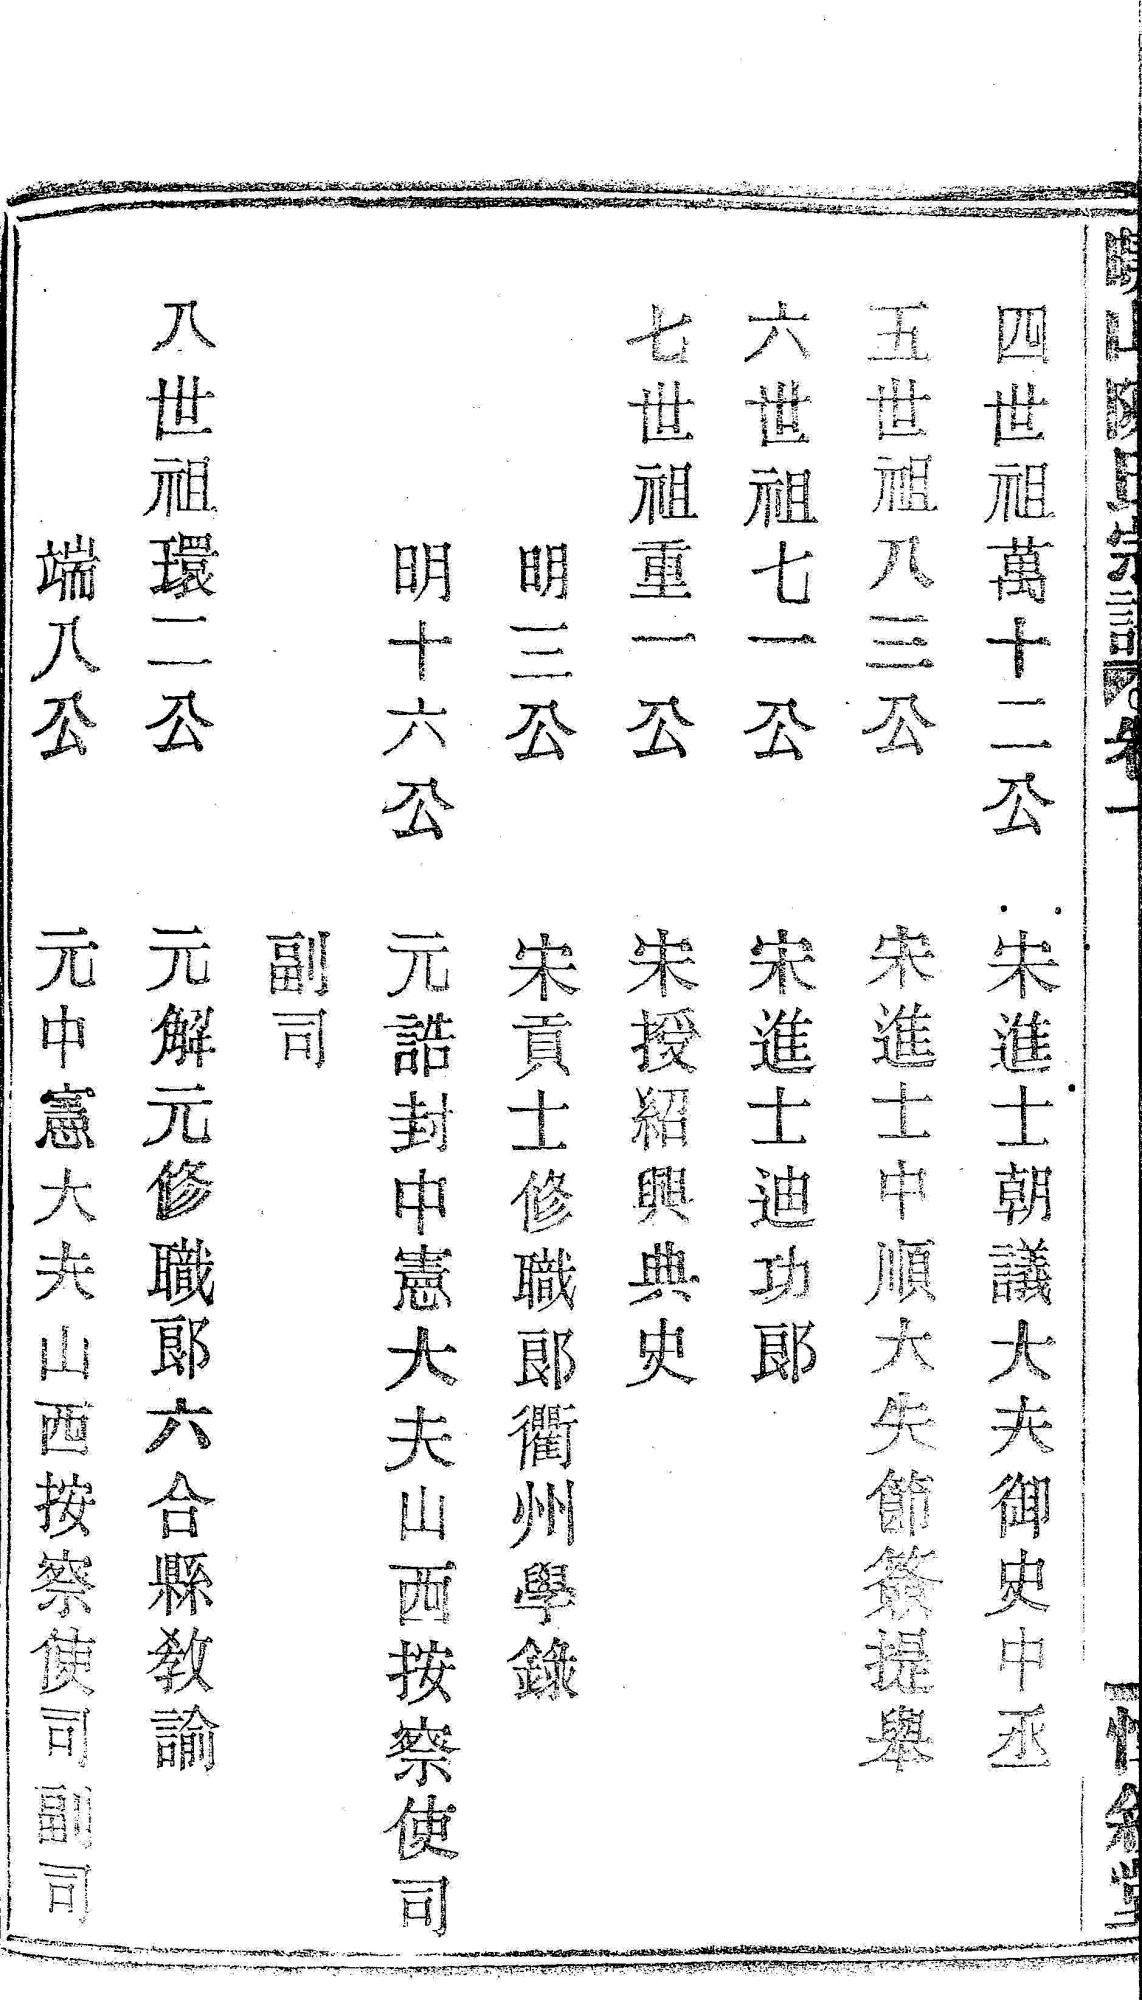 山陳氏宗譜 卷一
四世祖萬十二公 宋進士朝議大夫御史中丞
五世祖八三公 宋進士中順大失節簽提舉
六世祖七一公 宋進士迪功郎
七世祖重一公 宋授紹興典史
明三公 宋貢士修職郎衢州學錄
明十六公 元誥封中憲大夫山西按察使司
副司
八世祖環二公 元解元修職郎六合縣教諭
端八公 元中憲大夫山西按察使司副司